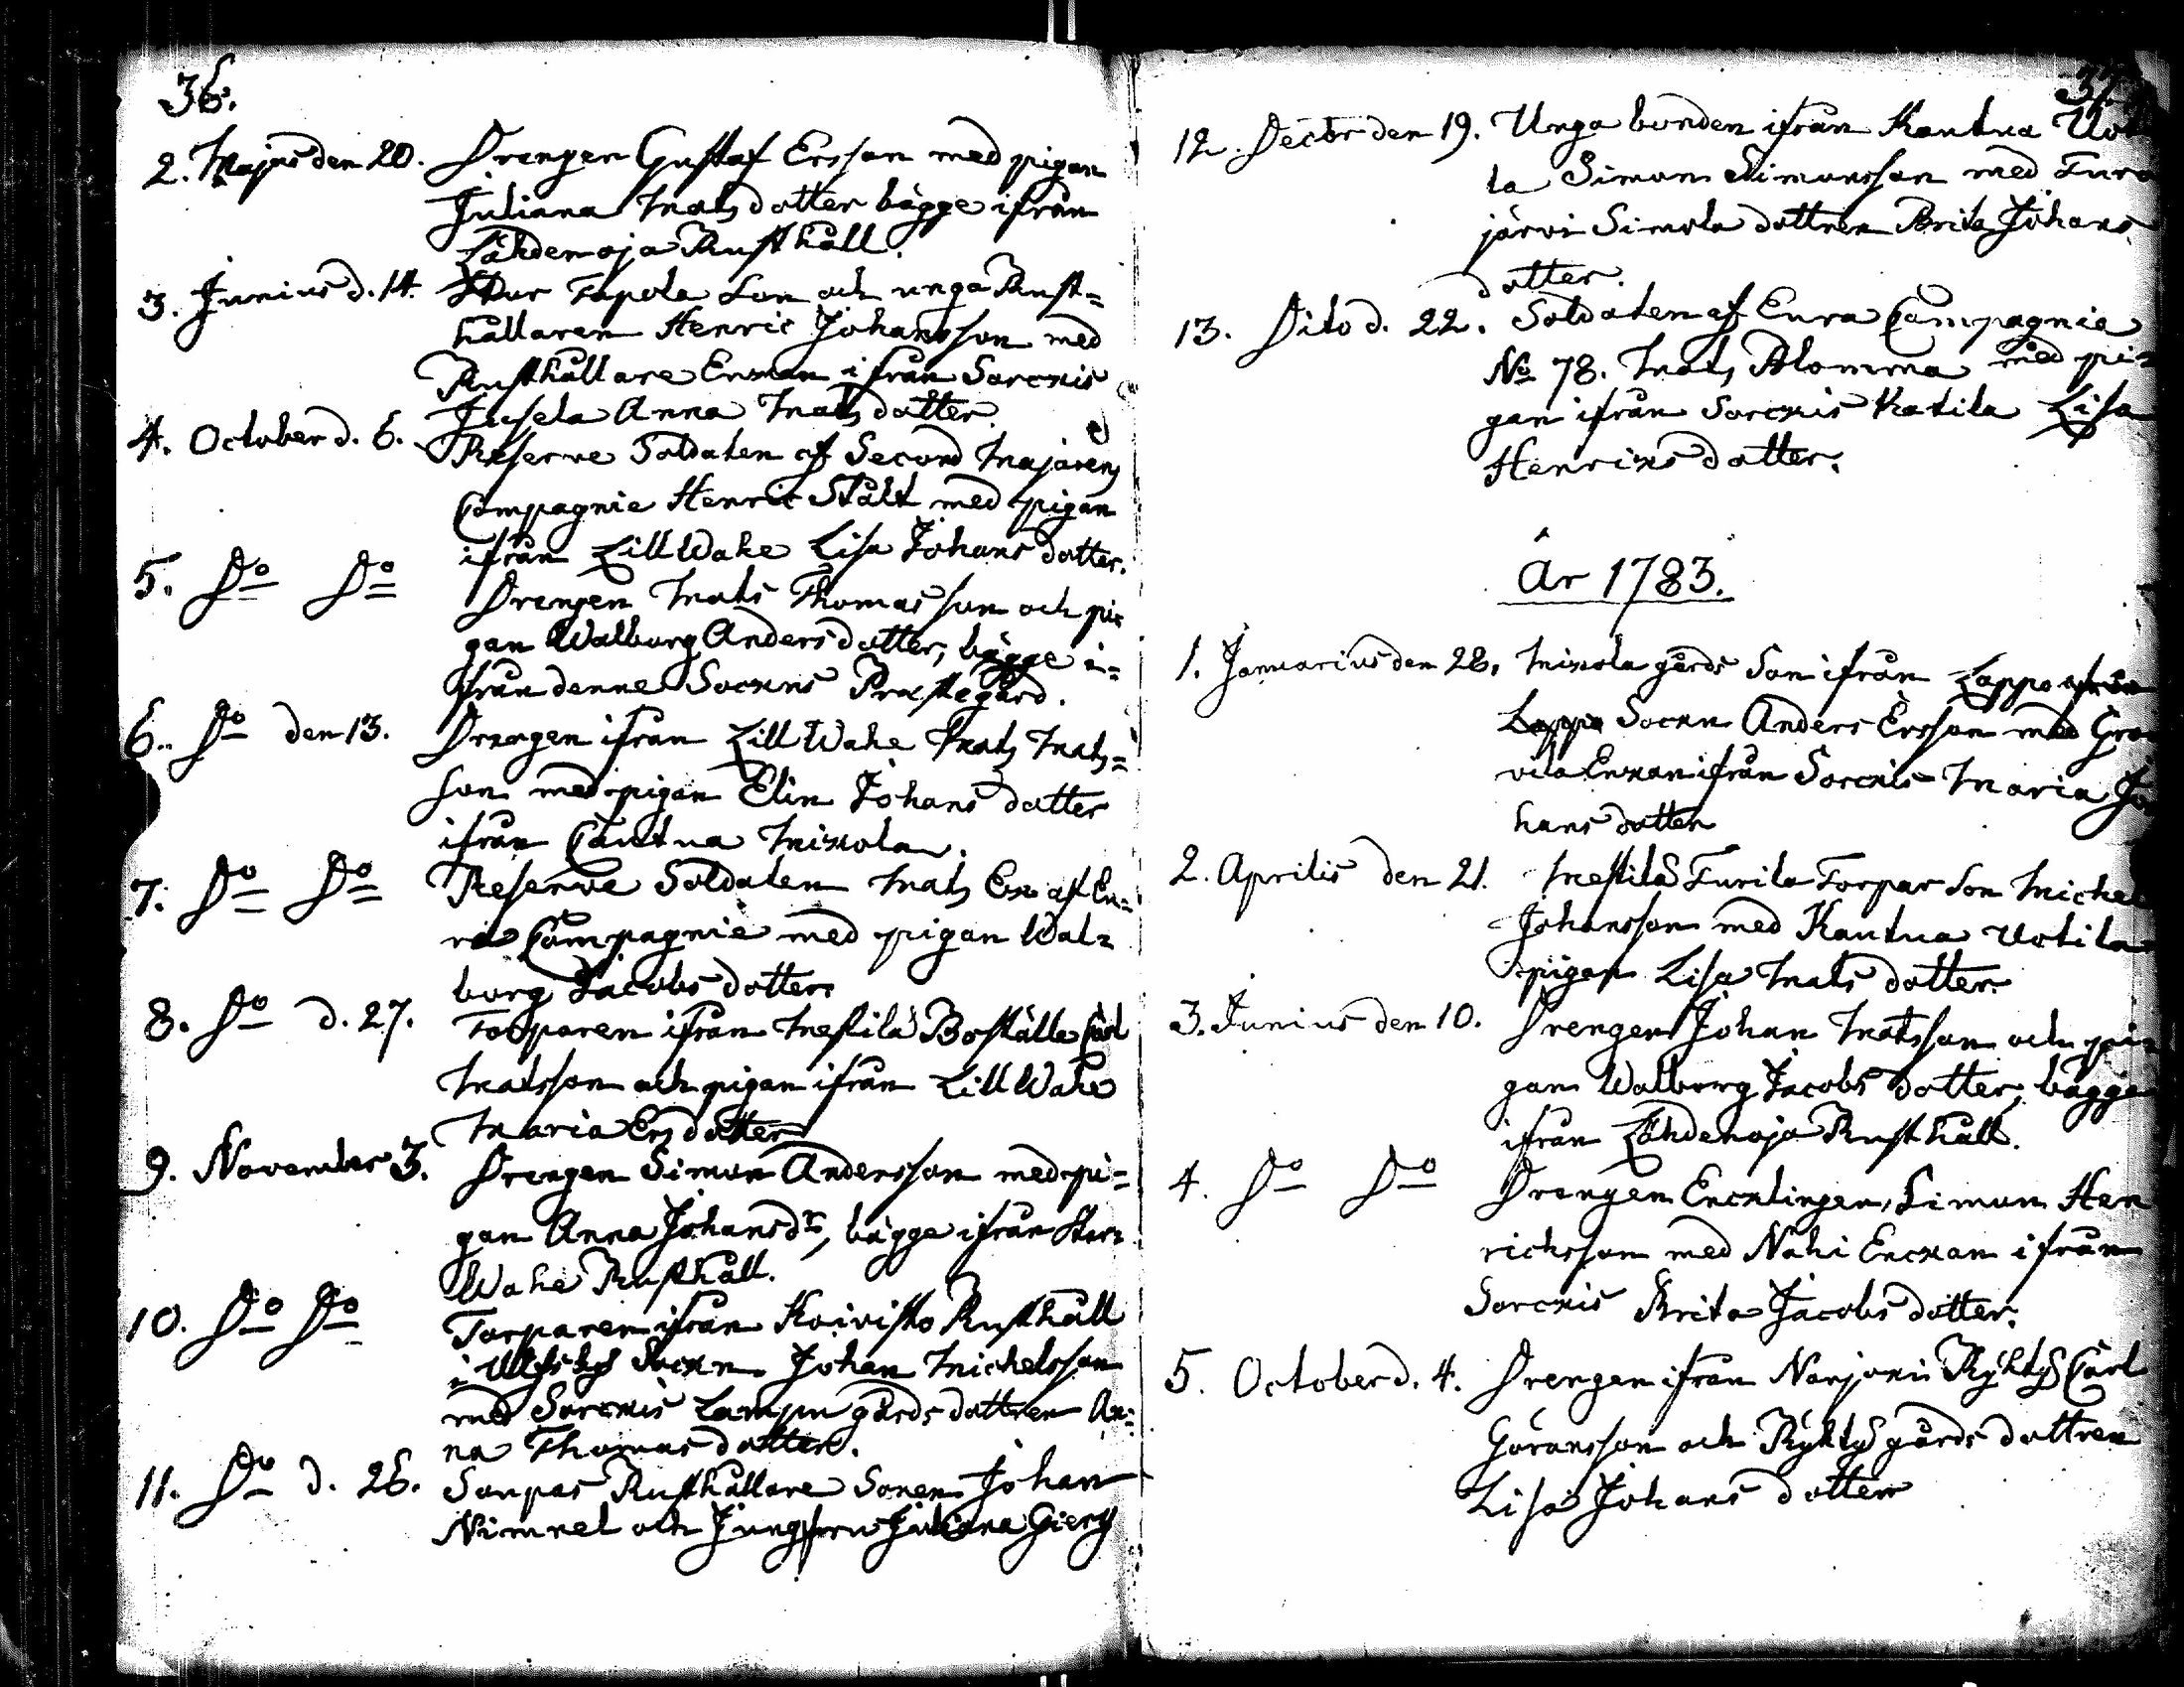 36.
2. Majus den 20. Drengen Gustaf Ersson med pigan
Juliana Matsdotter bägge ifrån
Lähdenoja Rusthåll.
3. Junius d. 14. Stor Tapola Son och unga Rust=
hållaren Henric Johansson med
Rusthållare Enkan ifrån Sorckis
Jusela Anna Matsdotter.
4. October d. 6. Reserve Soldaten af Second Majorens
Compagnie Henric Stålt med pigan
ifrån Lill Wahe Lisa Johansdotter.
5. Do Do Drengen Mats Thomasson och pi=
gan Walborg Andersdotter, bägge i=
från denne Sockns Prästegård.
6. Do den 13. Drengen ifrån Lill Wahe Mats Mats=
son med pigan Elin Johans dotter
ifrån Cautua Mikola.
7. Do Do Reserve Soldaten Mats Ek af Eu=
ra Compagnie med pigan Wal=
borg Jacobs dotter
8. Do d. 27. Torparen ifrån Mestilä Boställe Carl
Matsson och pigan ifrån Lill Wahe
Maria Ersdotter
9. November 3. Drengen Simon Andersson med pi=
gan Anna Johansdr, bägge ifrån Stor=
Wahe Rusthåll.
10. Do Do Torparen ifrån Koivisto Rusthåll
i Ulfsby Sockn Johan Michelsson
med Sorckis Lampu gårds dottren An=
na Thomasdotter.
11. Do d. 26. Sorpas Rusthållare Sonen Johan
Nimnel och Jungfru Juliana Gierg
37.
12. Decbr den 19. Unga bonden ifrån Kautua Uoti
la Simon Simonsson med Turo
järvi Simola dottren Brita Johans
dotter.
13. Dito d. 22. Soldaten af Eura Compagnie
No 78. Mats Blomma med pi=
gan ifrån Sorckis Katila Lisa
Henriksdotter.
År 1783.
1. Januarius den 28. Mikola gårds Son ifrån Lappo
Sockn Anders Ersson med
vila Enkan ifrån Sorckis Maria Jo
hans dotter
2. Aprilis den 21. Mestilä Turila Torpar Son Michel
Johansson med Kautua Uotila
pigan Lisa Mats dotter.
3. Junius den 10. Drengen Johan Matsson och pi=
gan Walborg Jacobs dotter, bägge
ifrån Lähdenoja Rusthåll.
4. Do Do Drengen Encklingen, Simon Hen
richsson med Nahi Enckan ifrån
Sorckis Brita Jacobs dotter.
5. October d. 4. Drengen ifrån Narjoki Ryhty Carl
Göransson och Ryhty gårds dottren
Lisa Johans dotter